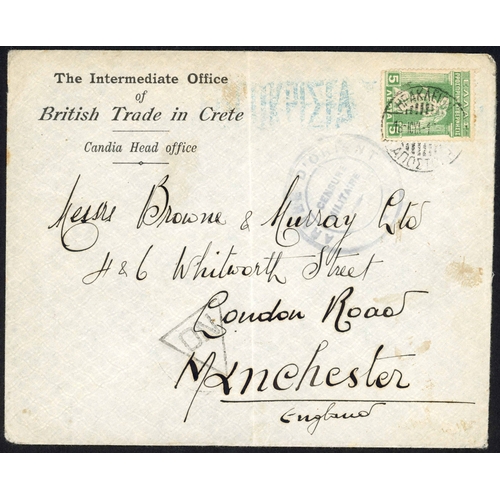 The Intermediate Office
of
British Trade in Crete
Candia Head office
5 ΛΕΠΤΑ 5
ΗΡΑΚΛΕΙΟΝ
D'ORIENT
Messrs Browne & Murray Ltd
4 & 6 Whitworth Street
London Road
Manchester
England